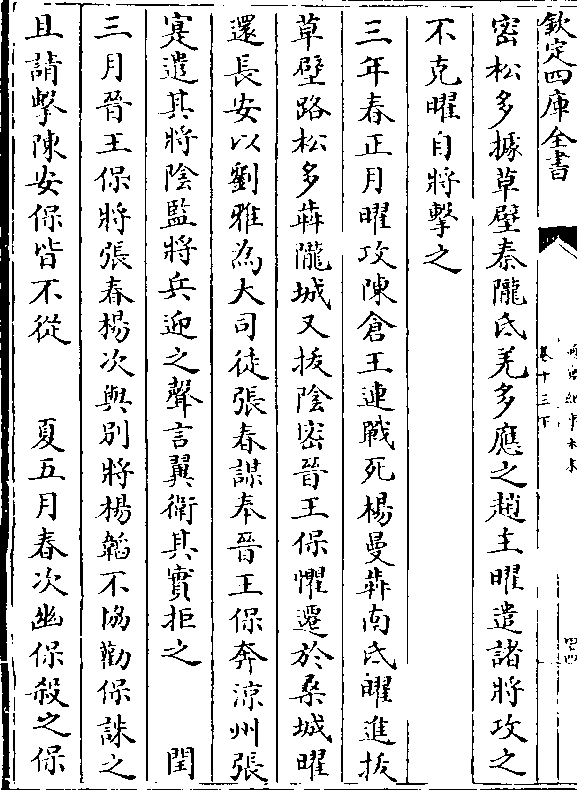 欽定四庫全書
通鑑紀事本末
卷十三下
四四
密松多據草壁秦隴氐羌多應之趙主曜遣諸將攻之
不克曜自將擊之
三年春正月曜攻陳倉王連戰死楊曼犇南氐曜進拔
草壁路松多犇隴城又拔陰密晉王保懼遷於桑城曜
還長安以劉雅為大司徒張春謀奉晉王保奔涼州張
寔遣其將陰監將兵迎之聲言翼衛其實拒之　閏
三月晉王保將張春楊次與別將楊韜不協勸保誅之
且請擊陳安保皆不從　夏五月春次幽保殺之保